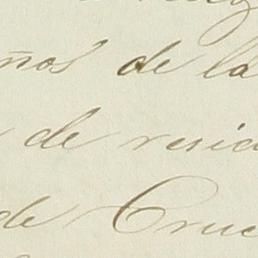 ños de la
de resid
de Cruce